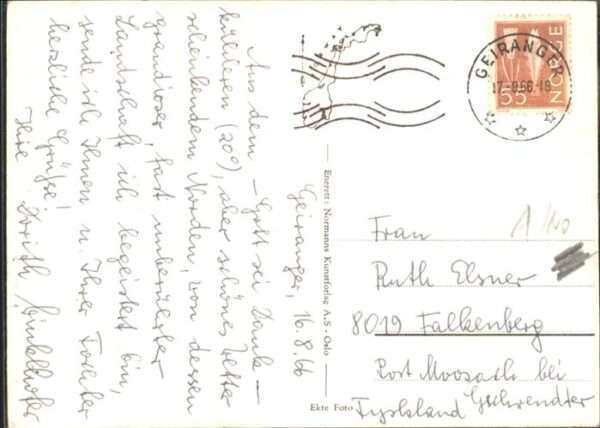 Geiranger, 16.8.66
Aus dem – Gott sei Dank –
kühleren (20°), aber schönes Wetter
schenkendem Norden, von dessen
grandioser, fast unberührter
Landschaft ich begeistert bin,
sende ich Ihnen u. Ihrer Tochter
herzliche Grüße!
Ihre Dorith
Enerett: Normanns Kunstforlag A.S - Oslo
Ekte Foto
GEIRANGER
17-8.66-18
NORGE
55
1/10
Frau
Ruth Elsner
8019 Falkenberg
Post Moosach bei
Tyskland Gschwendter